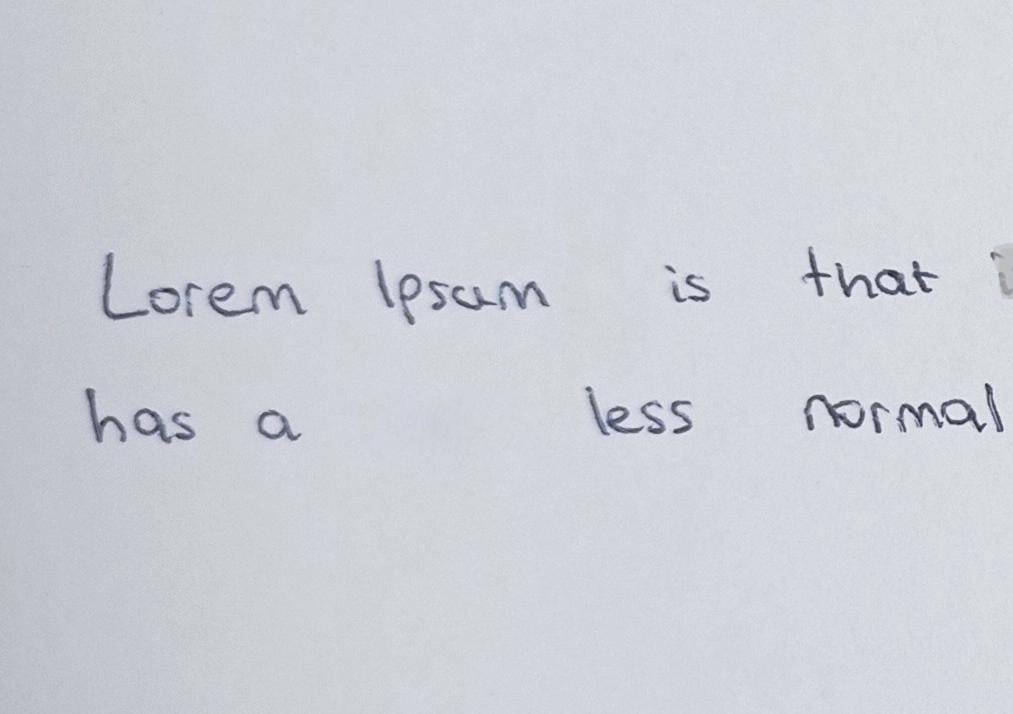 Lorem Ipsum is that
has a less normal